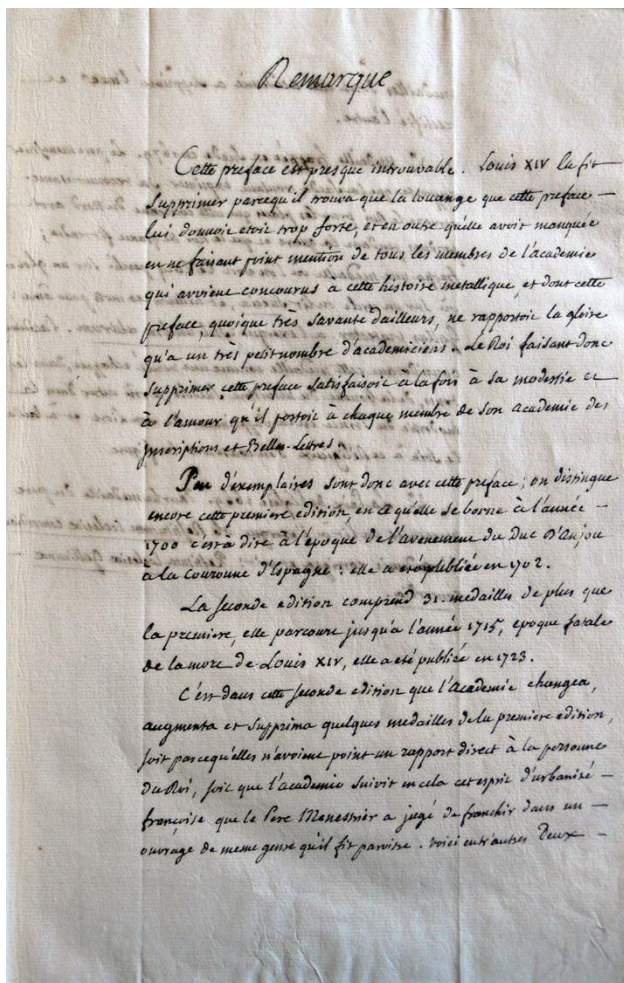 Remarque
Cette preface est presque introuvable. Louis XIV la fit
Supprimer parcequ'il trouva que la louange que cette preface —
lui donnoit etoit trop forte, et en outre qu'elle avoit manquée
en ne faisant point mention de tous les membres de l'academie
qui avoient concourus a cette histoire metallique, et dont cette
preface, quoique très savante d'ailleurs, ne rapportoit la gloire
qu'a un très petit nombre d'academiciens. Le Roi faisant donc
Supprimer cette preface satisfaisoit à la fois à sa modestie et
à l'amour qu'il portoit à chaque membre de son academie des
Inscriptions et Belles-Lettres.
Peu d'exemplaires sont donc avec cette preface; on distingue
encore cette premiere edition, en ce qu'elle se borne à l'année —
1700 c'est à dire à l'époque de l'avenement du Duc D'anjou
à la couronne d'Espagne: elle a été publiée en 1702.
La seconde edition comprend 31. medailles de plus que
la premiere, elle parcoure jusqu'a l'année 1715, epoque fatale
de la mort de Louis XIV, elle a été publiée en 1723.
C'est dans cette seconde edition que l'Academie changea,
augmenta et supprima quelques medailles de la premiere edition,
soit parcequ'elles n'avoient point un rapport direct à la personne
du Roi, soit que l'academie suivit en cela cet esprit d'urbanité —
françoise que le Pere Menestrier a jugé de franchir dans un —
ouvrage de meme genre qu'il fit paroitre. voici entr'autres Deux —